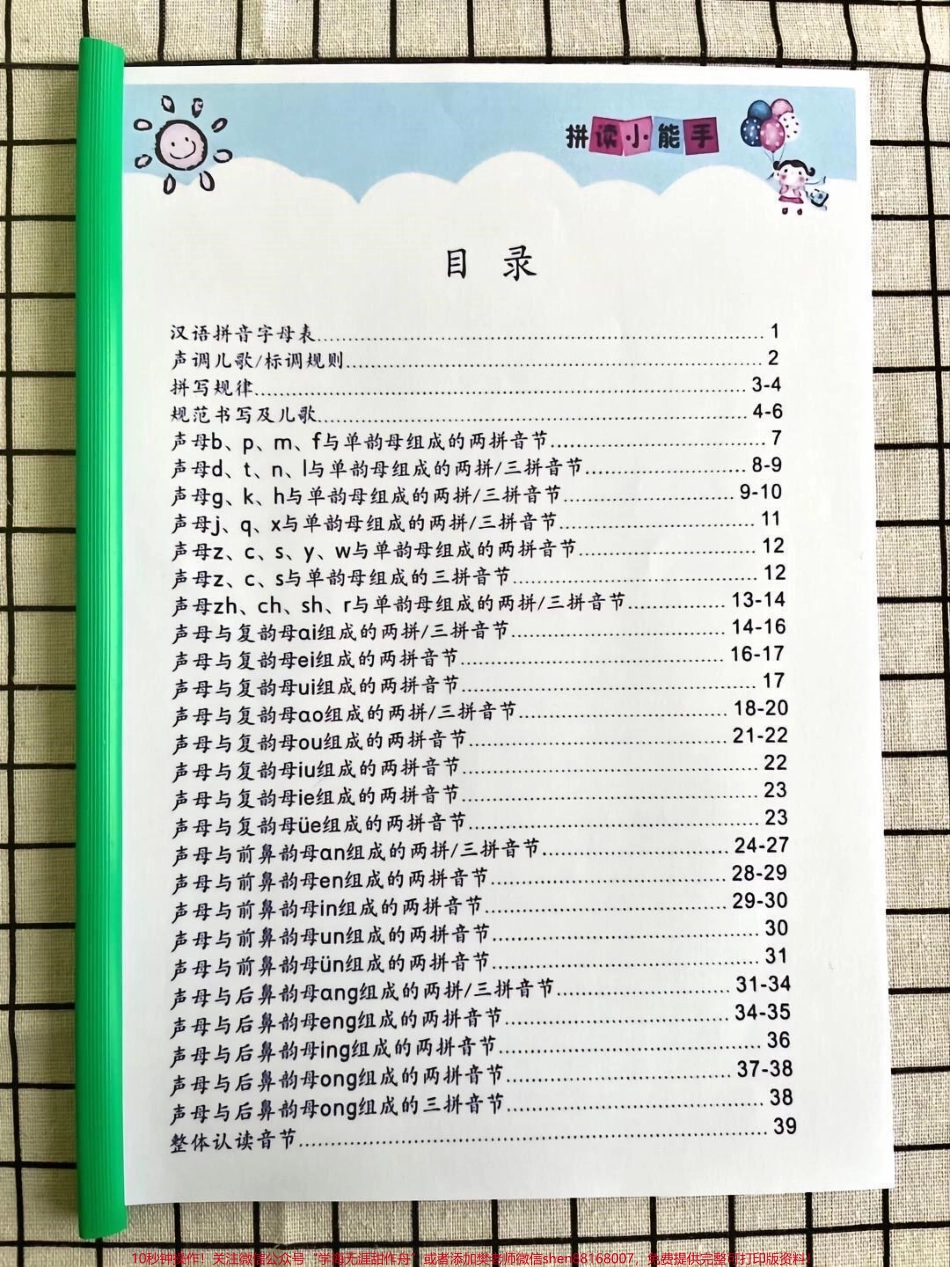 拼读小能手
目 录
汉语拼音字母表........................ 1
声调儿歌/标调规则........................ 2
拼写规律........................ 3-4
规范书写及儿歌........................ 4-6
声母b、p、m、f与单韵母组成的两拼音节........................ 7
声母d、t、n、l与单韵母组成的两拼/三拼音节........................ 8-9
声母g、k、h与单韵母组成的两拼/三拼音节........................ 9-10
声母j、q、x与单韵母组成的两拼/三拼音节........................ 11
声母z、c、s、y、w与单韵母组成的两拼音节........................ 12
声母z、c、s与单韵母组成的三拼音节........................ 12
声母zh、ch、sh、r与单韵母组成的两拼/三拼音节............... 13-14
声母与复韵母ai组成的两拼/三拼音节........................ 14-16
声母与复韵母ei组成的两拼音节........................ 16-17
声母与复韵母ui组成的两拼音节........................ 17
声母与复韵母ao组成的两拼/三拼音节........................ 18-20
声母与复韵母ou组成的两拼音节........................ 21-22
声母与复韵母iu组成的两拼音节........................ 22
声母与复韵母ie组成的两拼音节........................ 23
声母与复韵母üe组成的两拼音节........................ 23
声母与前鼻韵母an组成的两拼/三拼音节........................ 24-27
声母与前鼻韵母en组成的两拼音节........................ 28-29
声母与前鼻韵母in组成的两拼音节........................ 29-30
声母与前鼻韵母un组成的两拼音节........................ 30
声母与前鼻韵母ün组成的两拼音节........................ 31
声母与后鼻韵母ang组成的两拼/三拼音节........................ 31-34
声母与后鼻韵母eng组成的两拼音节........................ 34-35
声母与后鼻韵母ing组成的两拼音节........................ 36
声母与后鼻韵母ong组成的两拼音节........................ 37-38
声母与后鼻韵母ong组成的三拼音节........................ 38
整体认读音节........................ 39
10秒钟操作！关注微信公众号“学海无涯甜作舟”或者添加樊老师微信sheng8168007，免费提供完整可打印版资料！